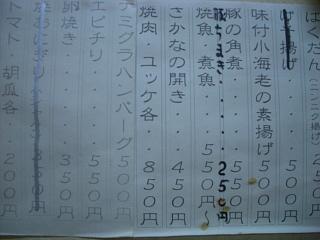 ばくだん(ニンニク揚げ)‥250円
げそ揚げ‥‥‥500円
味付小海老の素揚げ‥500円
豚の角煮‥‥‥500円
豚ちまき‥‥‥250円
焼魚・煮魚‥‥550円~
さかなの開き‥‥450円
焼肉・ユッケ各‥‥850円
デミグラハンバーグ 500円
エビチリ‥‥‥550円
卵焼き‥‥‥350円
トマト・胡瓜各‥200円